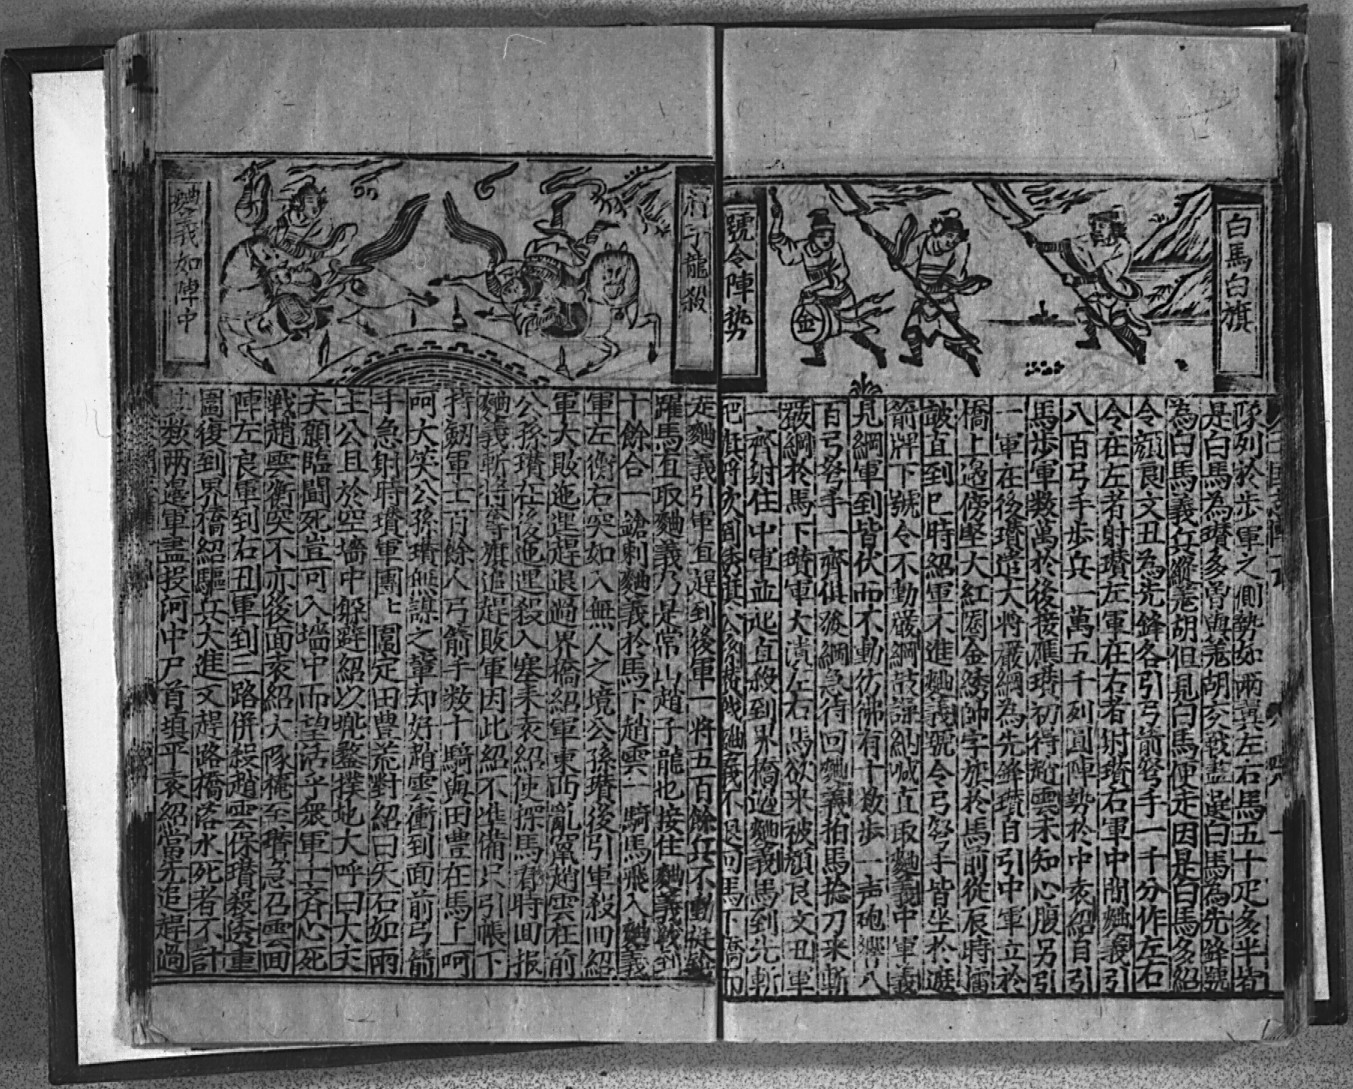 白馬白旗
號令陣勢
金
隊列於步軍之側勢如兩翼左右馬五十疋多半皆
是白馬為瓚多曽與羗胡交戰盡選白馬為先鋒號
為白馬義兵縱羗胡但見白馬便走因是白馬多紹
令顔良文丑為先鋒各引弓箭弩手一千分作左右
令在左者射瓚左軍在右者射瓚右軍中間麯義引
八百弓手歩兵一萬五千列圓陣勢於中袁紹自引
馬歩軍数萬於後接應瓚初得趙雲未知心腹另引
一軍在後瓚遣大將嚴綱為先鋒瓚自引中軍立於
橋上過傍竪大紅圈金綉帥字旗於馬前從辰時擂
皷直到巳時紹軍不進麯義號令弓弩手皆坐於遮
箭牌下號令不動嚴綱鼓譟納喊直取麯義中軍義
見綱軍到皆伏而不動彷彿有十數步一声砲響八
百弓弩手一齊俱發綱急待回麯義拍馬捻刀来斬
嚴綱於馬下瓚軍大潰左右馬欲来被顔良文丑軍
一齊射住中軍並此直殺到界橋邊麯義馬到先斬
把旗將次
趙子龍殺
麯義如陣中
走麯義引軍直趕到後軍一將五百餘兵不動挺鎗
躍馬直取麯義乃是常山趙子龍也接住麯義戰到
十餘合一鎗刺麯義於馬下趙雲一騎馬飛入麯義
軍左衝右突如入無人之境公孫瓚後引軍殺回紹
軍大敗迤逞趕退過界橋紹軍東西亂竄趙雲在前
公孫瓚在後迤逞殺入塞来袁紹使探馬看時回报
麯義斬將搴旗追趕敗軍因此紹不准備只引帳下
持戟軍士百餘人弓箭手数十騎與田豊在馬上呵
呵大笑公孫瓚無謀之輩却好趙雲衝到面前弓箭
手急射時瓚軍團上圍定田豊荒對紹曰矢石如雨
主公且於空墻中躲避紹以兜鍪撲地大呼曰大夫
夫願臨閫死豈可入墻中而望活乎衆軍士斉心死
戦趙雲衝突不亦後面袁紹大隊掩至瓚急召雲囬
陣左良軍到右丑軍到三路併殺趙雲保瓚殺透重
圍復到界橋紹驅兵大進文趕路橋落水死者不計
其数两邉軍盡投河中尸首填平袁紹當先追趕過